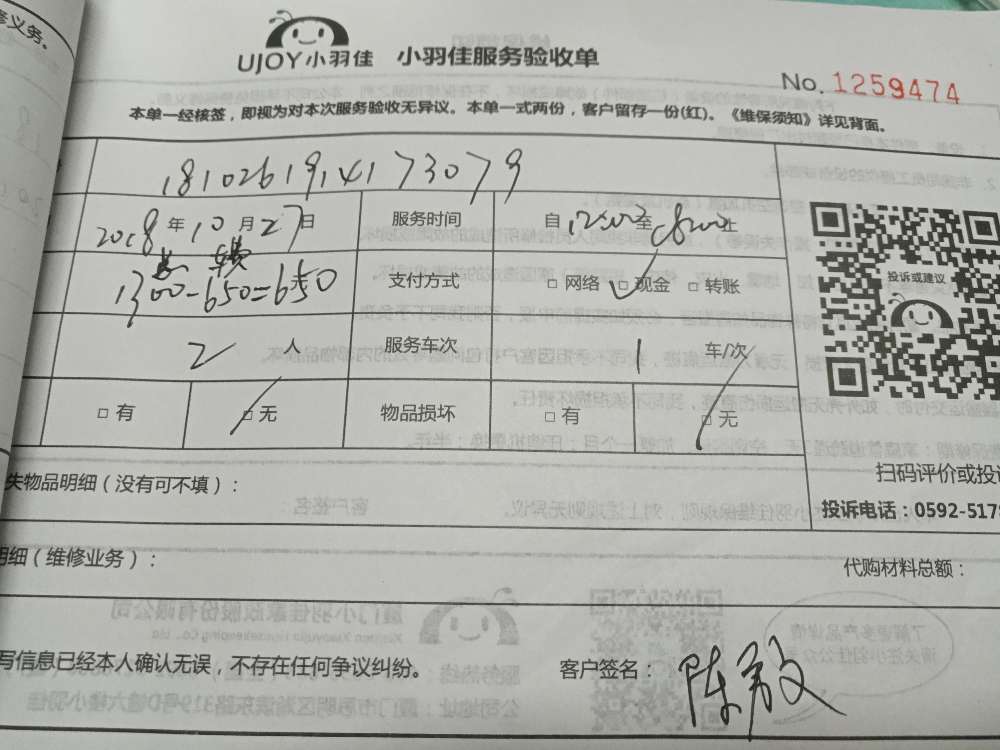 修义务。
UJOY小羽佳 小羽佳服务验收单
No. 1259474
本单一经核签，即视为对本次服务验收无异议。本单一式两份，客户留存一份(红)。《维保须知》详见背面。
1810261914173079
2018年10月27日 服务时间 自12:00至18:00止
1300-650=650 支付方式 □ 网络 □ 现金 □ 转账
投诉或建议
2 人 服务车次 1 车/次
□ 有 □ 无 物品损坏 □ 有 □ 无
扫码评价或投诉
失物品明细（没有可不填）：
投诉电话：0592-5179
明细（维修业务）： 代购材料总额：
写信息已经本人确认无误，不存在任何争议纠纷。 客户签名：陈敏